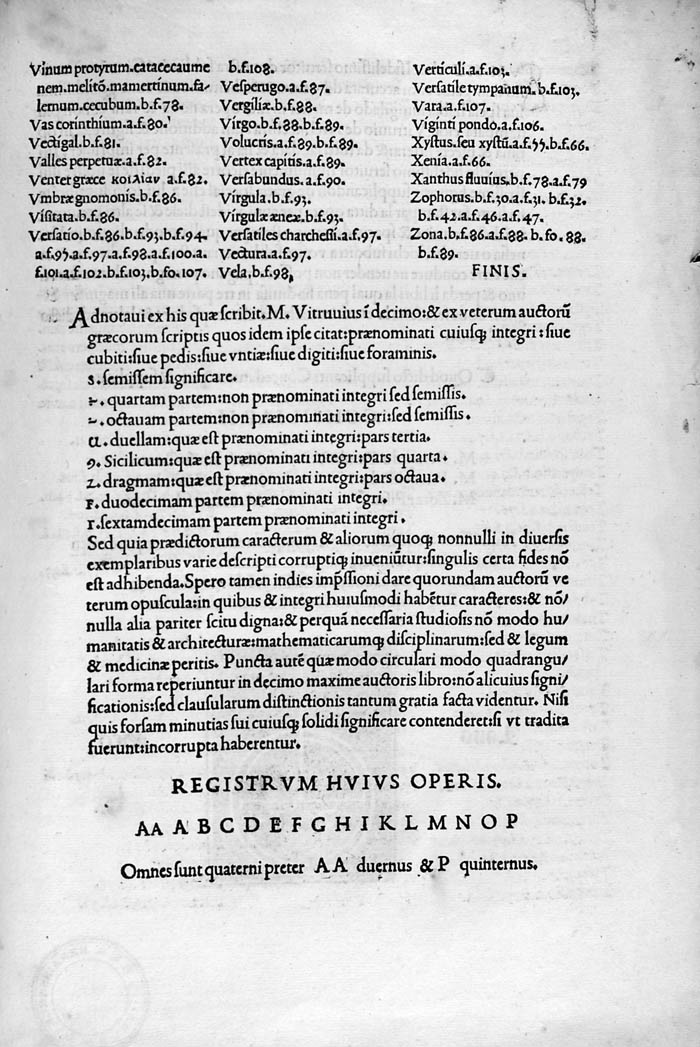 Vinum protyrum.catacecaume
nem.melitō.mamertinum.fa-
lernum.cecubum.b.f.78.
Vas corinthium.a.f.80.
Vectigal.b.f.81.
Valles perpetuæ.a.f.82.
Venter græce κοιλίαν a.f.82.
Vmbræ gnomonis.b.f.86.
Visitata.b.f.86.
Versatio.b.f.86.b.f.93.b.f.94.
a.f.95.a.f.97.a.f.98.a.f.100.a.
f.101.a.f.102.b.f.103.b.fo.107.
b.f.108.
Vesperugo.a.f.87.
Vergiliæ.b.f.88.
Virgo.b.f.88.b.f.89.
Volucris.a.f.89.b.f.89.
Vertex capitis.a.f.89.
Versabundus.a.f.90.
Virgula.b.f.93.
Virgulæ æneæ.b.f.93.
Versatiles charchesii.a.f.97.
Vectura.a.f.97.
Vela.b.f.98.
Verticuli.a.f.103.
Versatile tympanum.b.f.103.
Vara.a.f.107.
Viginti pondo.a.f.106.
Xystus.seu xystū.a.f.55.b.f.66.
Xenia.a.f.66.
Xanthus fluuius.b.f.78.a.f.79
Zophorus.b.f.30.a.f.31.b.f.32.
b.f.42.a.f.46.a.f.47.
Zona.b.f.86.a.f.88.b.fo.88.
b.f.89.
FINIS.
Adnotaui ex his quæ scribit.M.Vitruuius ī decimo:& ex veterum auctorū
græcorum scriptis quos idem ipse citat:prænominati cuiusq; integri:siue
cubiti:siue pedis:siue vntiæ:siue digiti:siue foraminis.
s.semissem significare.
. quartam partem:non prænominati integri sed semissis.
. octauam partem:non prænominati integri:sed semissis.
u. duellam:quæ est prænominati integri:pars tertia.
9. Sicilicum:quæ est prænominati integri:pars quarta.
z. dragmam:quæ est prænominati integri:pars octaua.
. duodecimam partem prænominati integri.
. sextamdecimam partem prænominati integri.
Sed quia prædictorum caracterum & aliorum quoq; nonnulli in diuersis
exemplaribus varie descripti corruptiq; inueniūtur:singulis certa fides nō
est adhibenda.Spero tamen indies impssioni dare quorundam auctorū ve
terum opuscula:in quibus & integri huiusmodi habētur caracteres:& nō/
nulla alia pariter scitu digna:& perquā necessaria studiosis nō modo hu/
manitatis & architecturæ:mathematicarumq; disciplinarum:sed & legum
& medicinæ peritis. Puncta autē quæ modo circulari modo quadrangu/
lari forma reperiuntur in decimo maxime auctoris libro:nō alicuius signi/
ficationis:sed clausularum distinctionis tantum gratia facta videntur. Nisi
quis forsam minutias sui cuiusq; solidi significare contenderet:si vt tradita
fuerunt:incorrupta haberentur.
REGISTRVM HVIVS OPERIS.
AA A B C D E F G H I K L M N O P
Omnes sunt quaterni preter AA duernus & P quinternus.